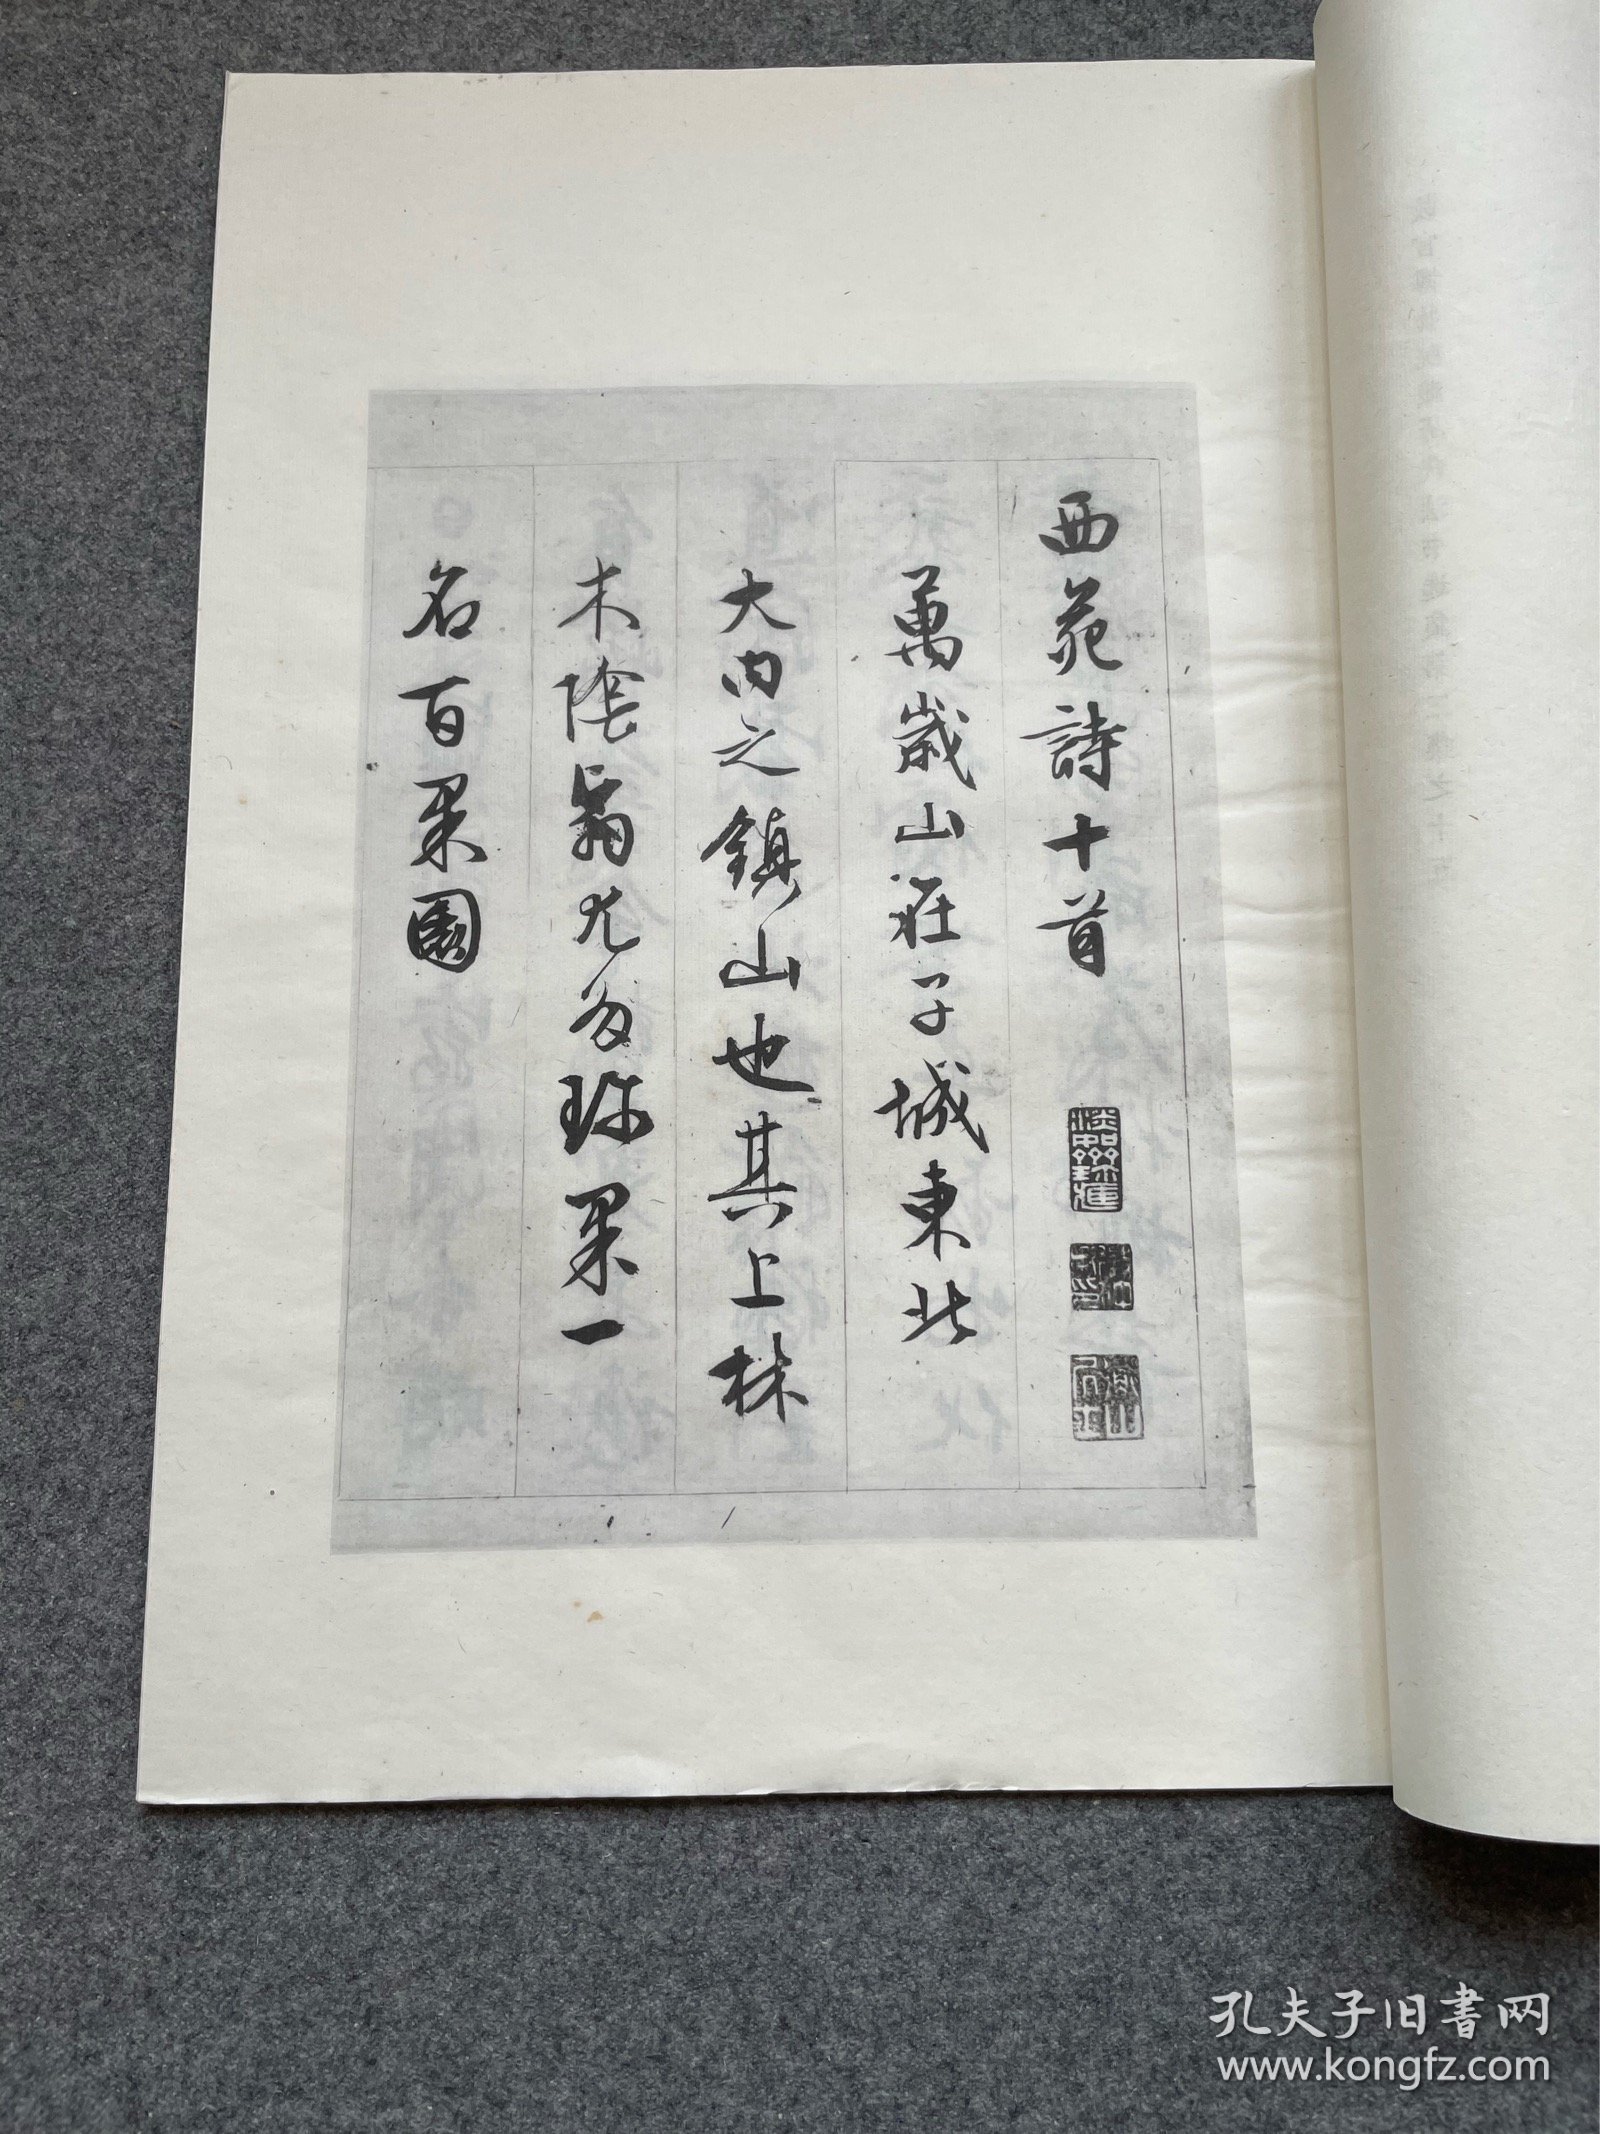 西苑詩十首
萬歲山在子城東北
大内之鎮山也其上林
木陰翳尤多珎果一
名百果園
孔夫子旧書网
www.kongfz.com